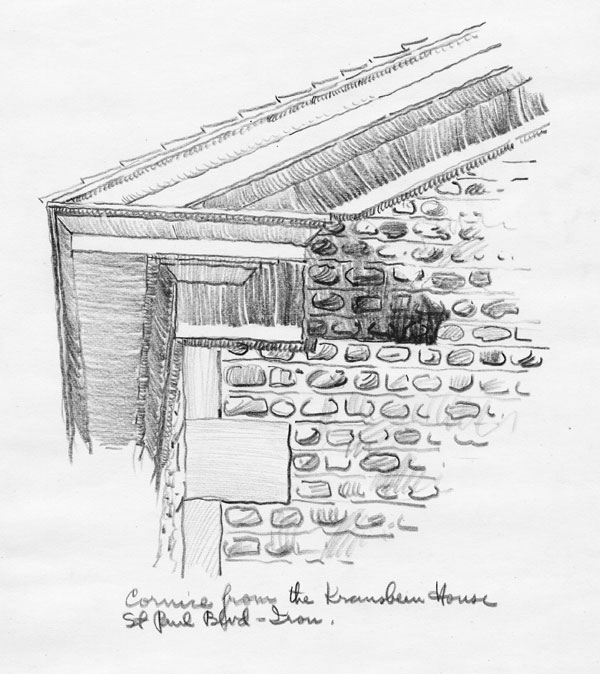 Cornice from the Kransbeun House
St Paul Blvd - Iron.